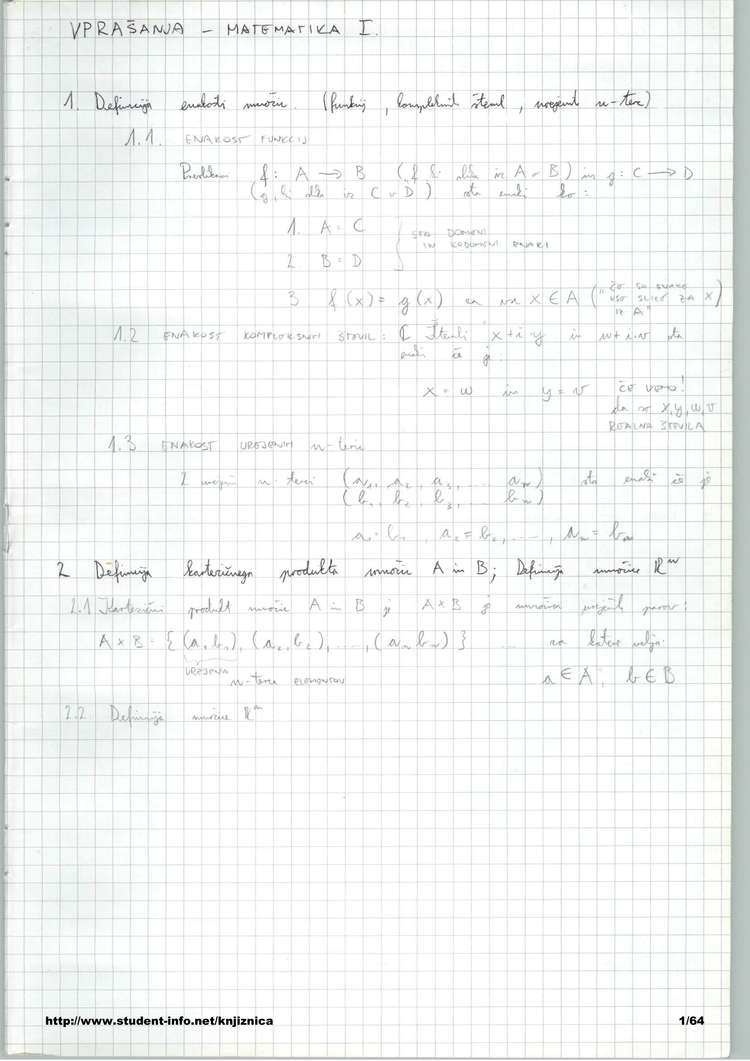 VPRAŠANJA - MATEMATIKA I.
1. Definicija enakosti množic. (funkcij, kompleksnih števil, urejenih n-teric)
1.1. ENAKOST FUNKCIJ
Preslikavi f: A → B (f, ki slika iz A v B) in g: C → D
(g, ki slika iz C v D) sta enaki ko:
1. A = C
2. B = D
STA DOMENI
IN KODOMENI ENAKI
3. f(x) = g(x) za vsak x ∈ A ("ČE SO ENAKE
VSE SLIKE ZA X
IZ A")
1.2 ENAKOST KOMPLEKSNIH ŠTEVIL: ℂ Števili x+i·y in w+i·v sta
enaki če je:
x = w in y = v ČE VEMO!
da so x, y, w, v
REALNA ŠTEVILA
1.3 ENAKOST UREJENIH n-teric
2 urejeni n-terici (a₁, a₂, a₃, ... aₙ) sta enaki če je
(b₁, b₂, b₃, ... bₙ)
a₁ = b₁, a₂ = b₂, ..., aₙ = bₙ
2 Definicija kartezičnega produkta množic A in B; Definicija množice ℝⁿ
2.1 Kartezični produkt množic A in B je A×B je množica urejenih parov:
A×B = {(a₁,b₁), (a₂,b₂), ..., (aₙ,bₙ)} ... za katere velja:
UREJENA
n-terica ELEMENTOV a ∈ A; b ∈ B
2.2 Definicija množice ℝⁿ
http://www.student-info.net/knjiznica 1/64